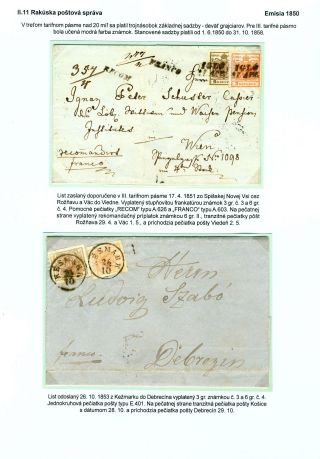 II.11 Rakúska poštová správa
Emisia 1850
V treťom tarifnom pásme nad 20 míľ sa platil trojnásobok základnej sadzby - deväť grajciarov. Pre III. tarifné pásmo
bola učená modrá farba známok. Stanovené sadzby platili od 1. 6.1850 do 31. 10. 1858.
RECOM
FRANCO
IGLO
17 APR.
357
Ignaz Peter Schuster Cassier
des Löbl. Wittwen und Waisen Pension
Institutes
Wien
recomandirt
franco
No 1098
List zaslaný doporučene v III. tarifnom pásme 17. 4. 1851 zo Spišskej Novej Vsi cez
Rožňavu a Vác do Viedne. Vyplatený stupňovitou frankatúrou známok 3 gr. č. 3 a 6 gr.
č. 4. Pomocné pečiatky „RECOM" typu A.626 a „FRANCO" typu A.603. Na pečatnej
strane vyplatený rekomandačný príplatok známkou 6 gr. II., tranzitné pečiatky pôšt
Rožňava 29. 4. a Vác 1. 5., a príchodzia pečiatka pošty Viedeň 2. 5.
KESMARK
26
10
KESMARK
26
10
Herrn
Ludwig Szabó
franco
Debrezin
List odoslaný 26. 10. 1853 z Kežmarku do Debrecína vyplatený 3 gr. známkou č. 3 a 6 gr. č. 4.
Jednokruhová pečiatka pošty typu E.401. Na pečatnej strane tranzitná pečiatka pošty Košice
s dátumom 28. 10. a príchodzia pečiatka pošty Debrecín 29. 10.